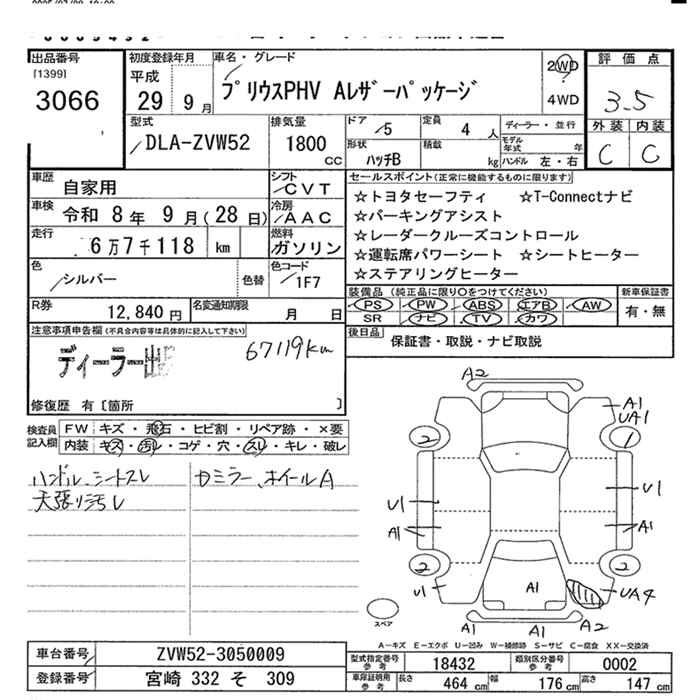 出品番号
[1399]
3066
初度登録年月
平成
29 9月
車名・グレード
プリウスPHV Aレザーパッケージ
2WD
4WD
評価点
3.5
外装 内装
C C
型式
DLA-ZVW52
排気量
1800
CC
ドア
5
定員
4人
ディーラー・並行
形状
ハッチB
積載
kg
モデル年式 年
ハンドル 左・右
車歴
自家用
シフト
CVT
セールスポイント(正常に機能するものに限ります)
☆トヨタセーフティ ☆T-Connectナビ
☆パーキングアシスト
☆レーダークルーズコントロール
☆運転席パワーシート ☆シートヒーター
☆ステアリングヒーター
車検
令和 8年 9月(28日)
冷房
AAC
走行
6万7千118 km
燃料
ガソリン
色
シルバー
色替
色コード
1F7
装備品 (純正品に限り○をつけてください)
新車保証書
PS PW ABS エアB AW
SR ナビ TV カワ
有・無
R券
12,840円
名変通知期限
月 日
後日品
保証書・取説・ナビ取説
注意事項申告欄(不具合内容等は具体的に記入して下さい)
ディーラー出
67119km
修復歴 有〔箇所 〕
検査員
記入欄
FW キズ・飛石・ヒビ割・リペア跡・×要
内装 キズ・汚レ・コゲ・穴・スレ・キレ・破レ
ハンドル、シートスレ
天張り汚レ
カミラー、ホイールA
A2
A1
UA1
2
1
U1
U1
A1
A1
2
2
U1
A1
UA4
A1
A1
A2
スペア
A―キズ E―エクボ U―凹み W―補修跡 S―サビ C―腐食 XX―交換済
車台番号
ZVW52-3050009
登録番号
宮崎 332 そ 309
型式指定番号
参考
18432
類別区分番号
参考
0002
車庫証明用
参考
長さ
464 cm
幅
176 cm
高さ
147 cm